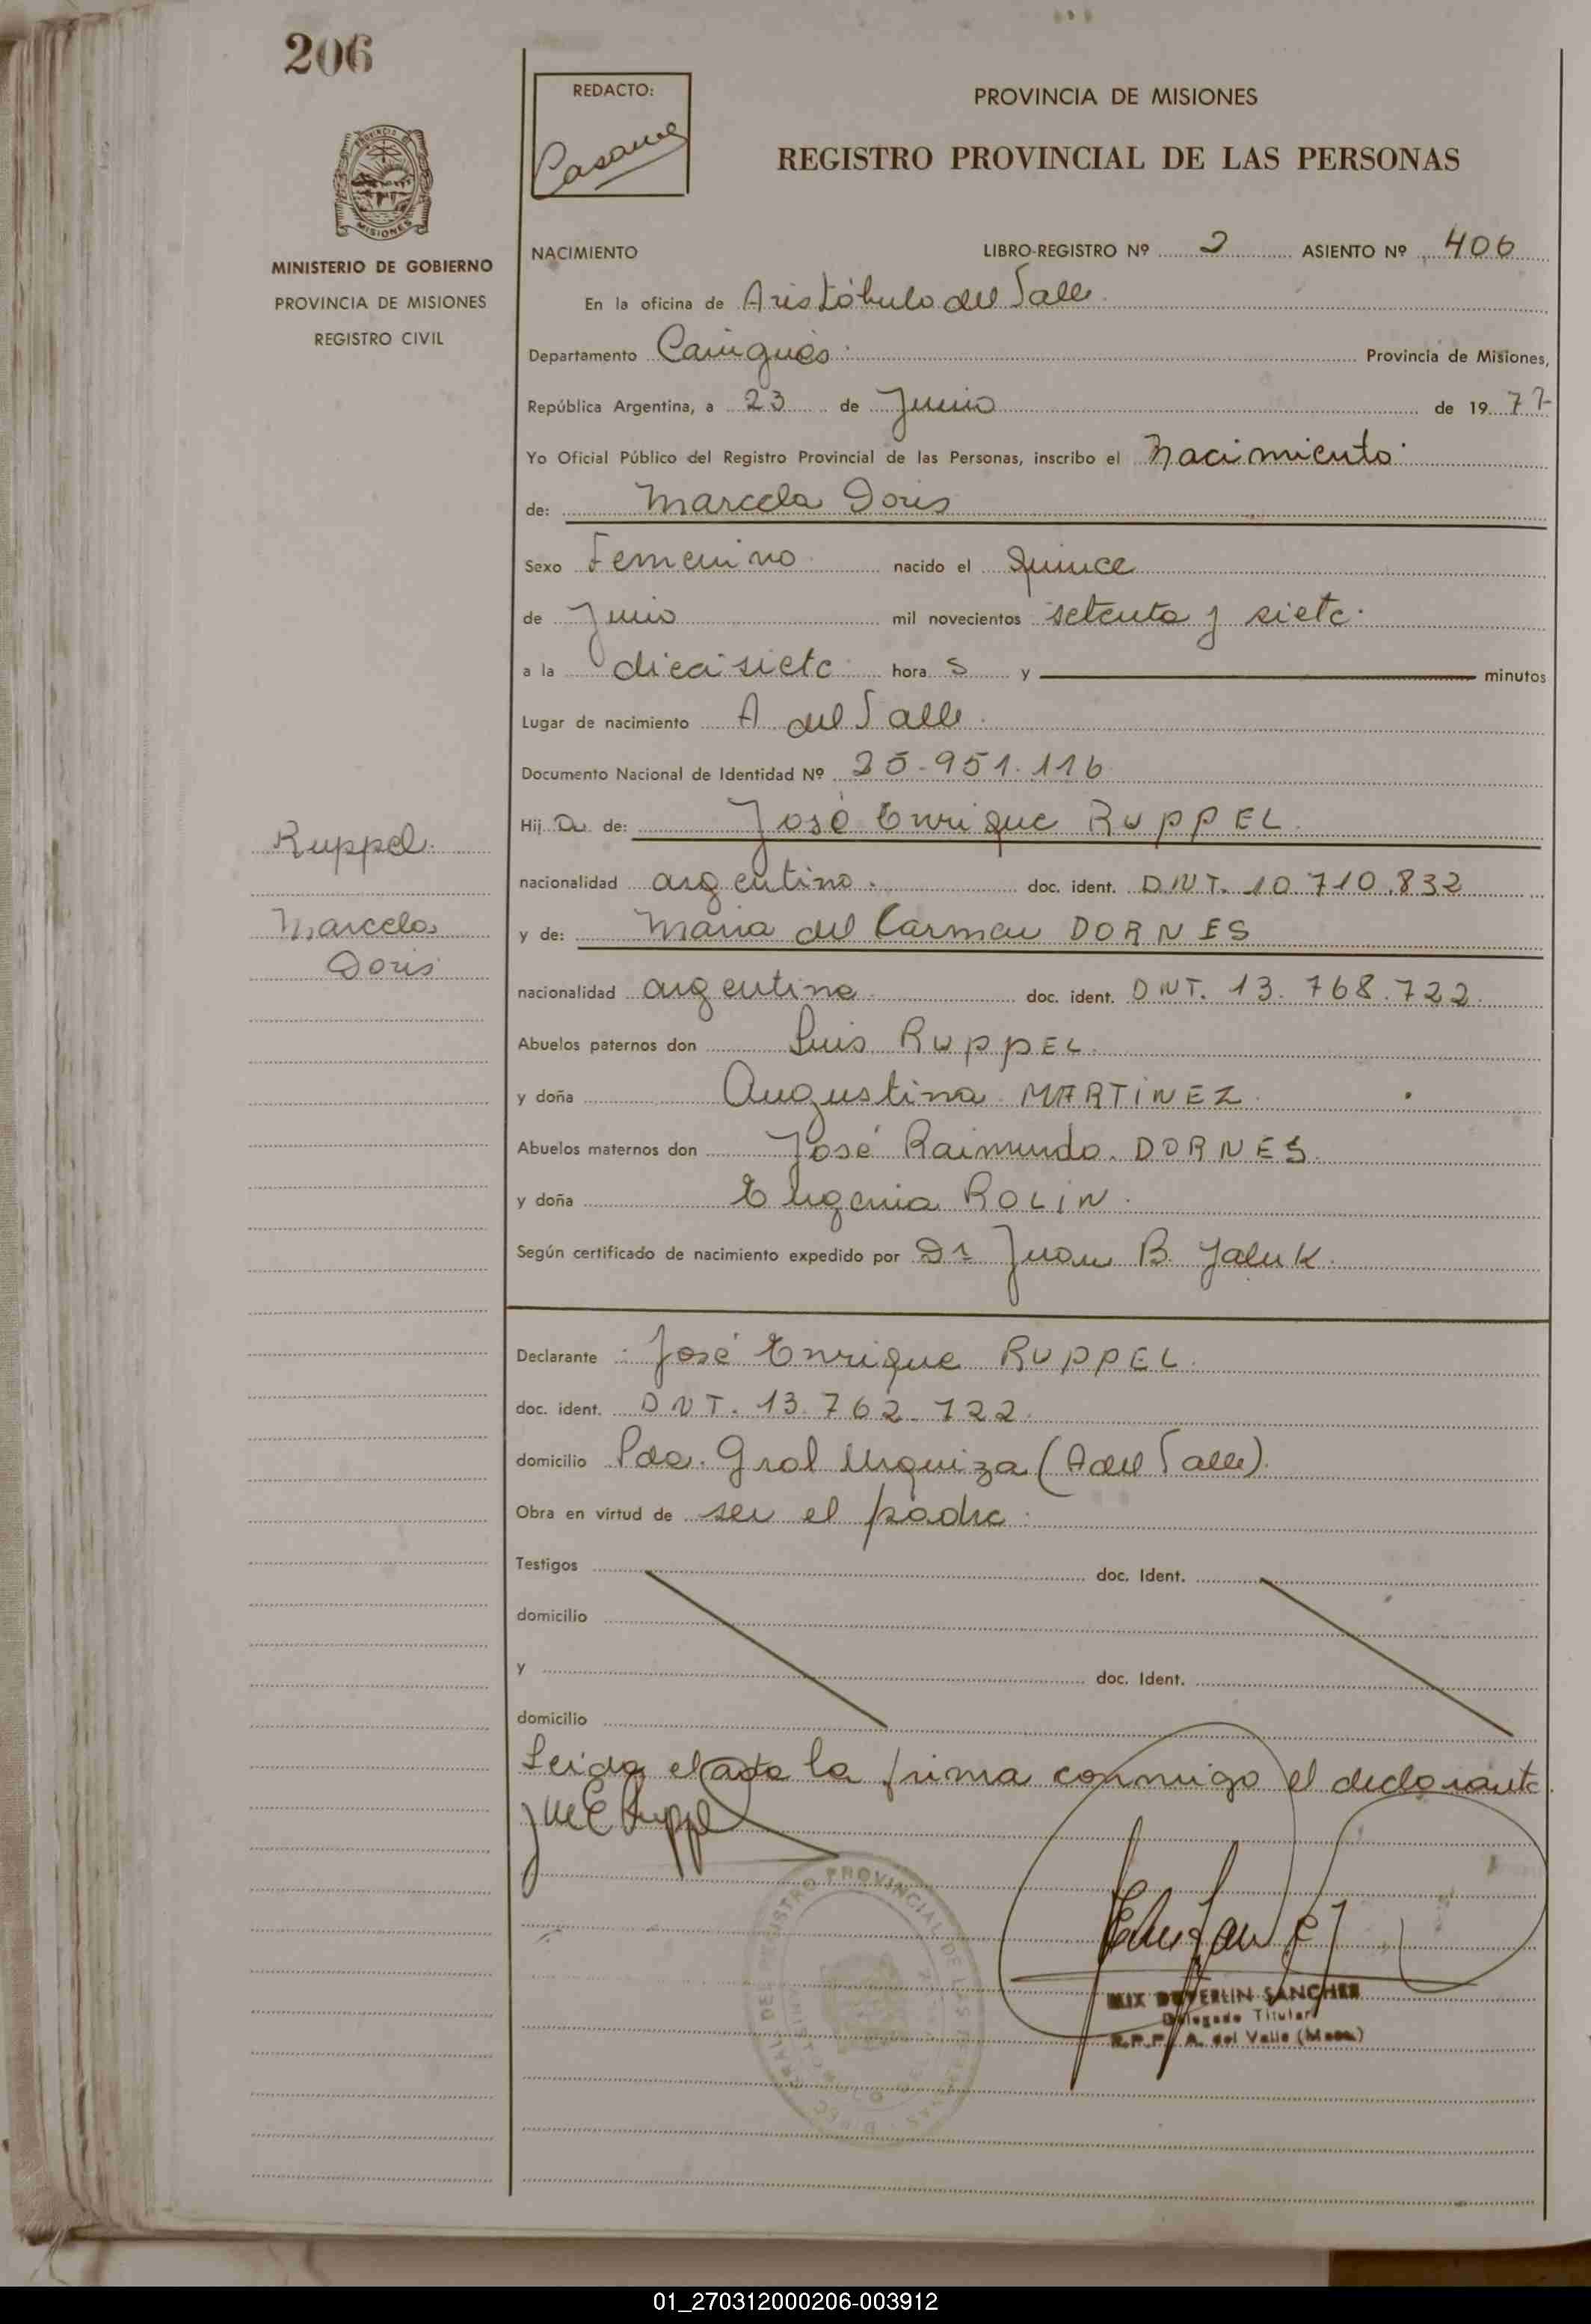 206
REDACTO:
PROVINCIA DE MISIONES
REGISTRO PROVINCIAL DE LAS PERSONAS
MISIONES
MINISTERIO DE GOBIERNO
PROVINCIA DE MISIONES
REGISTRO CIVIL
NACIMIENTO LIBRO-REGISTRO Nº 2 ASIENTO Nº 406
En la oficina de Aristóbulo del Valle
Departamento Cainguás Provincia de Misiones,
República Argentina, a 23 de Junio de 1977
Yo Oficial Público del Registro Provincial de las Personas, inscribo el Nacimiento
de: Marcela Doris
Sexo Femenino nacido el Quince
de Junio mil novecientos setenta y siete
a la diecisiete hora s y minutos
Lugar de nacimiento A del Valle
Documento Nacional de Identidad Nº 25.951.116
Hij a de: José Enrique RUPPEL
nacionalidad argentino. doc. ident. DNI. 10.710.832
y de: Maria del Carmen DORNES
nacionalidad argentina doc. ident. DNI. 13.768.722
Abuelos paternos don Luis RUPPEL
y doña Augustina MARTINEZ
Abuelos maternos don José Raimundo DORNES
y doña Eugenia ROLIN
Según certificado de nacimiento expedido por Dr Juan B. Jaluk
Declarante José Enrique RUPPEL
doc. ident. DNI. 13.762.722
domicilio Pda. Gral Urquiza (A del Valle)
Obra en virtud de ser el padre
Testigos doc. Ident.
domicilio
y doc. Ident.
domicilio
Leida el acta la firma conmigo el declarante
Ruppel
Marcela
Doris
SANCHEZ
Delegado Titular
R.P.P. A. del Valle (Mnes.)
01_270312000206-003912